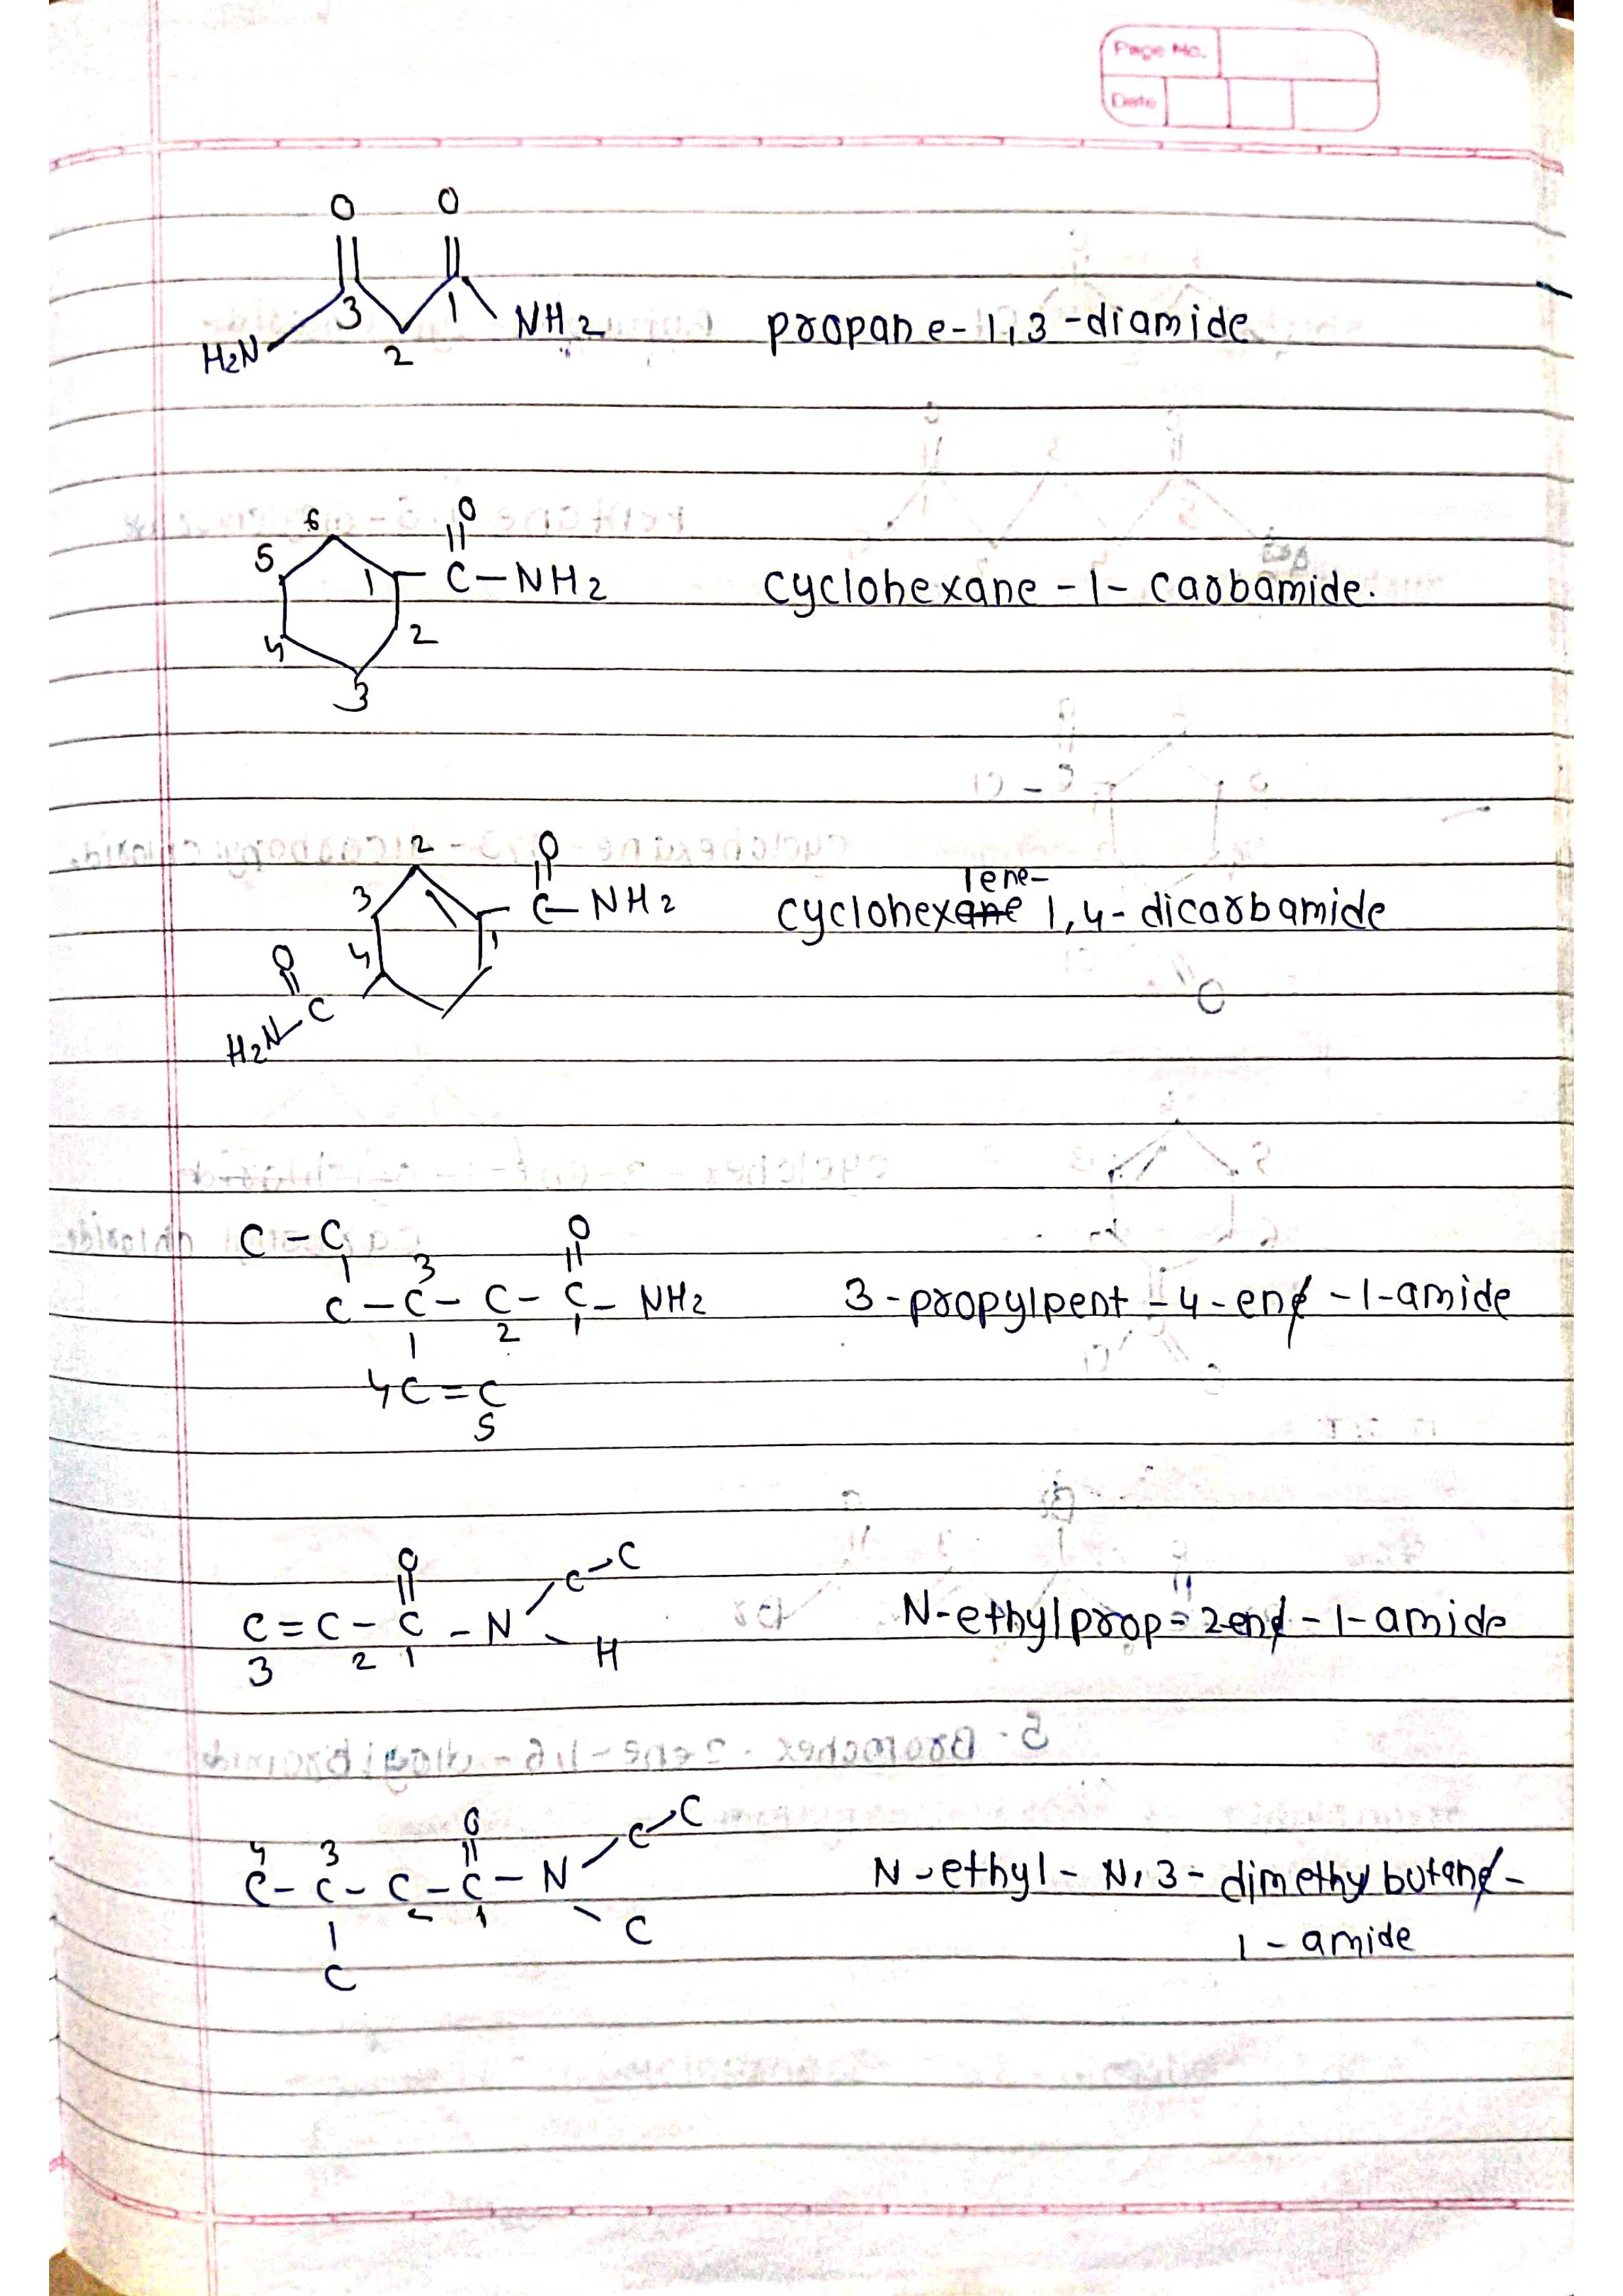 Page No.
Date
O O
3 1
H2N 2 NH2 propane-1,3-diamide
6 O
5 1 C-NH2 cyclohexane-1-carbamide.
4 2
3
2 O
3 C-NH2 cyclohexane 1ene- 1,4-dicarbamide
4 1
O
H2N C
C-C O
3
C-C-C-C-NH2 3-propylpent-4-ene-1-amide
2 1
4C=C
5
O C-C
C=C-C-N N-ethylprop=2ene-1-amide
3 2 1 H
O C-C
4 3
C-C-C-C-N N-ethyl-N,3-dimethylbutane-
2 1 C 1-amide
C